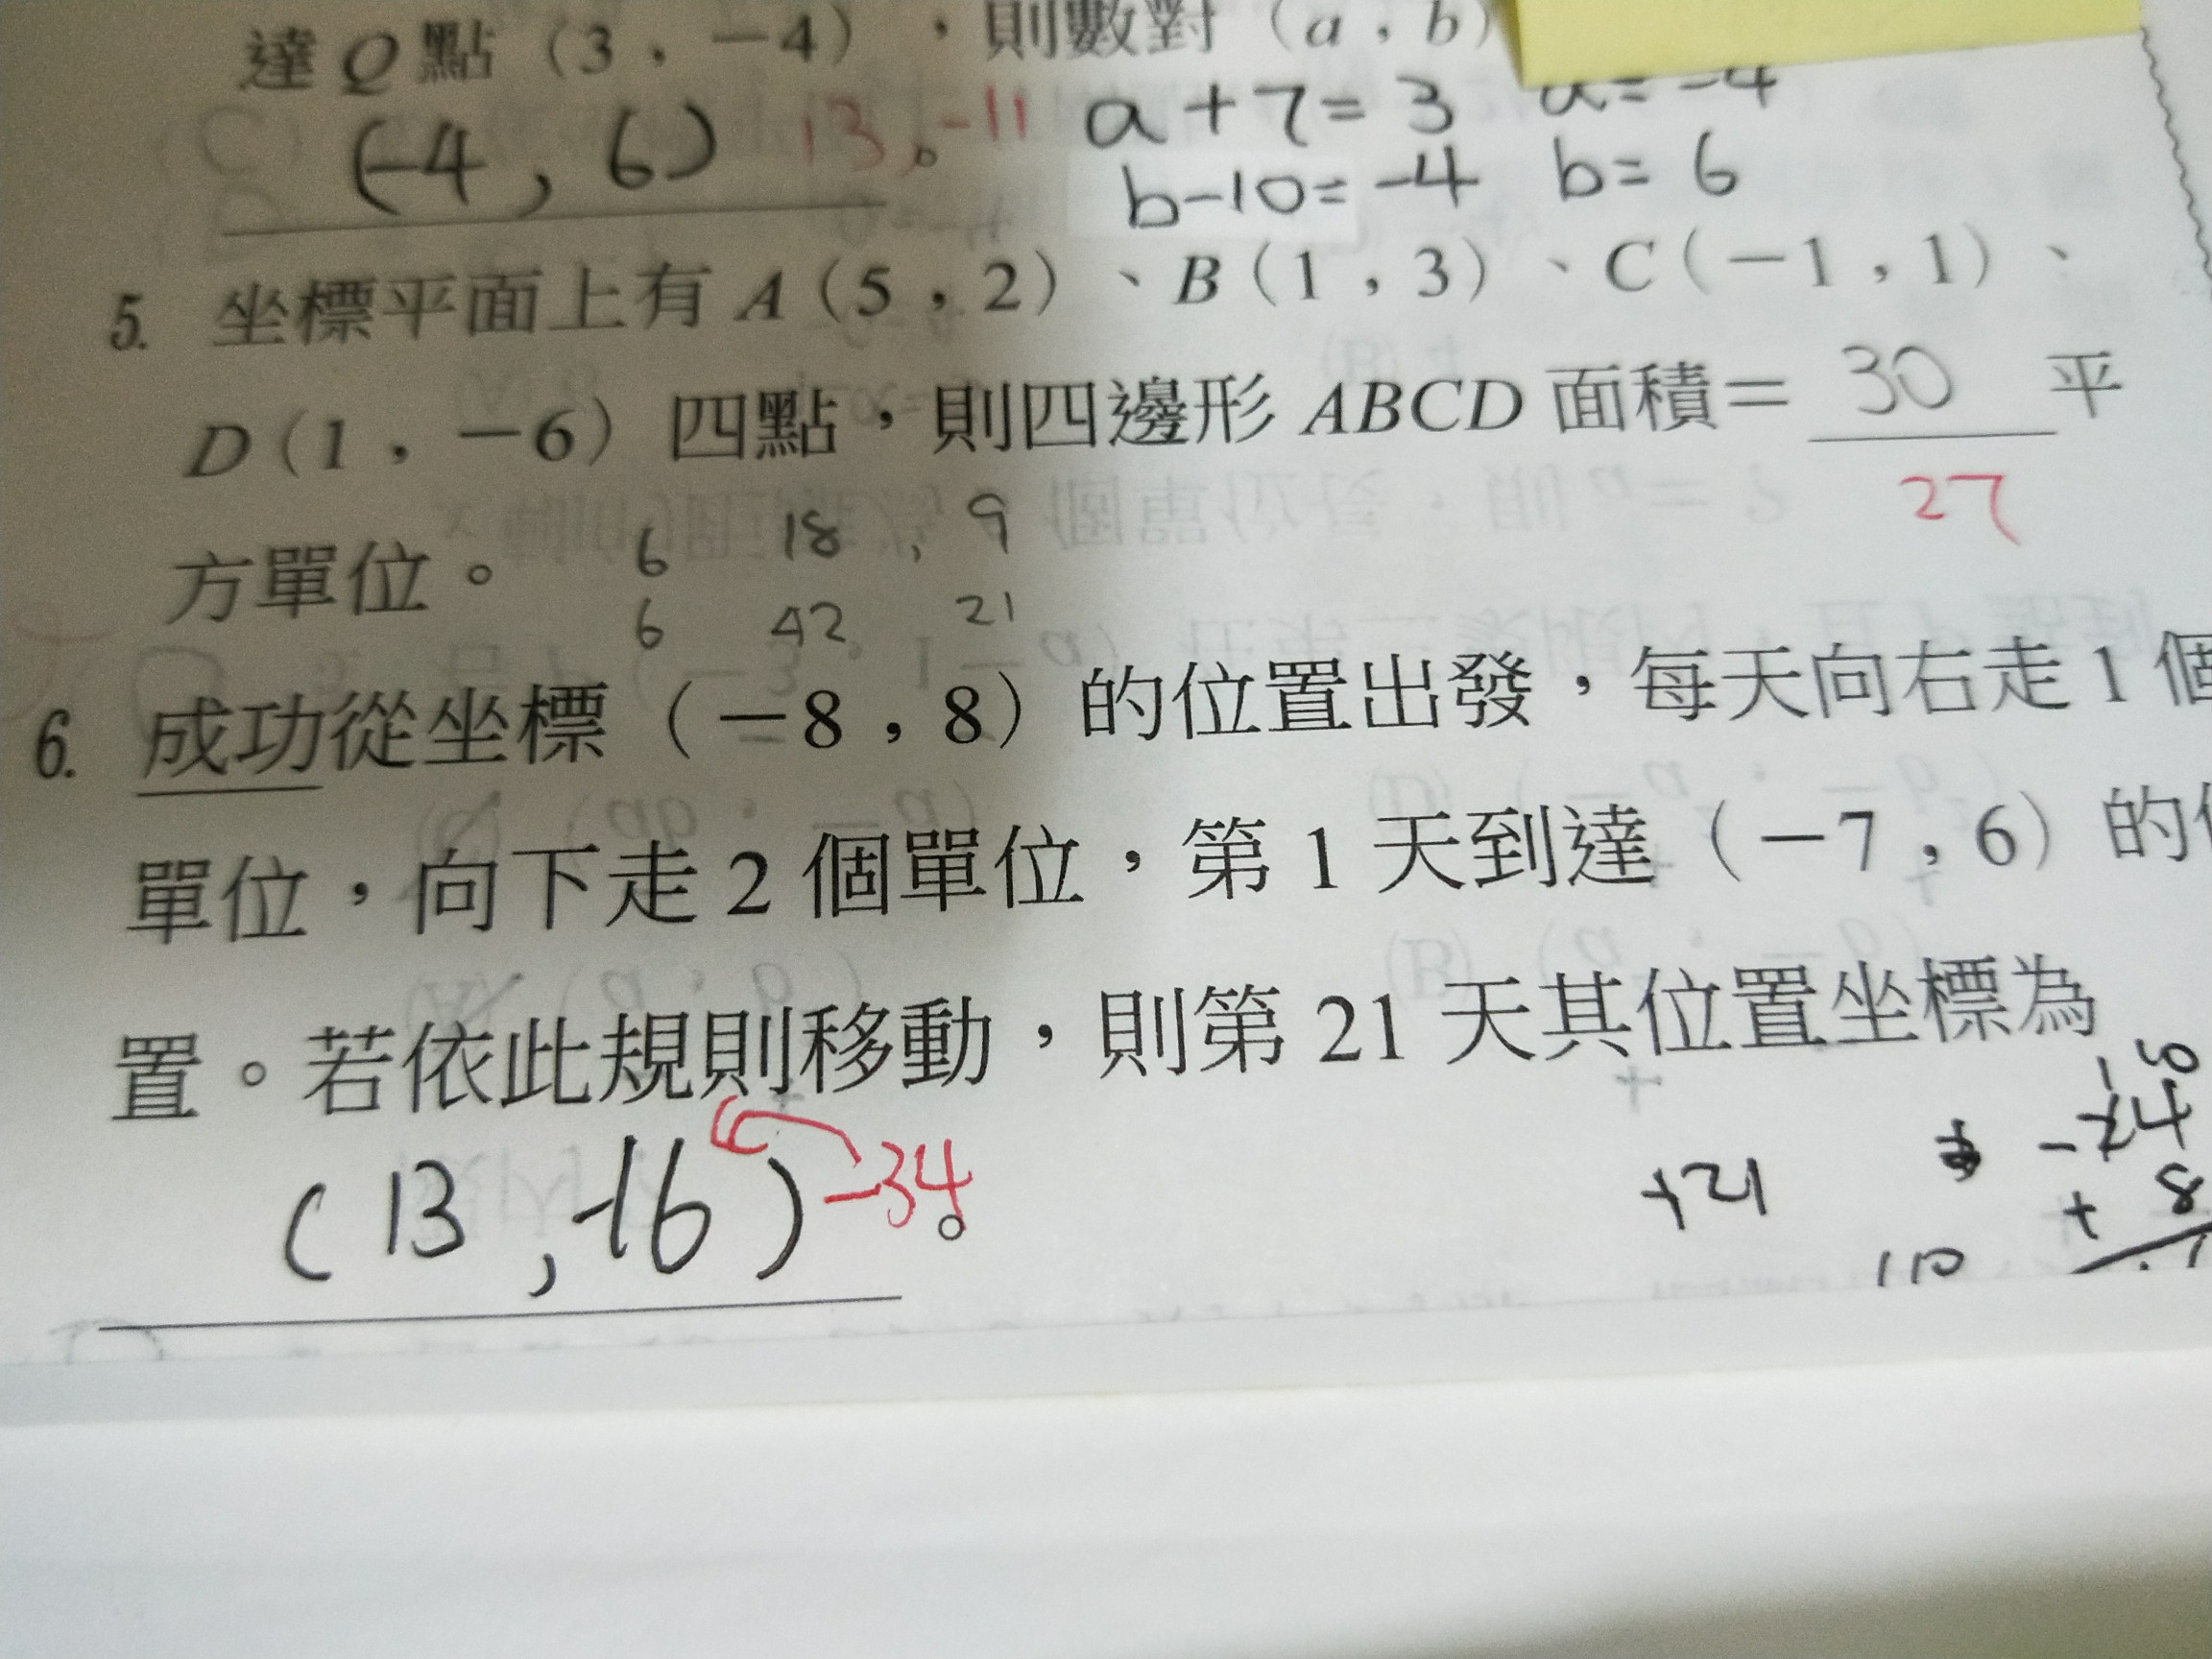 達Q點（3，－4），則數對（a，b）
(-4, 6) 13, -11 。 a+7=3 a=-4
b-10=-4 b=6
5. 坐標平面上有A（5，2）、B（1，3）、C（－1，1）、
D（1，－6）四點，則四邊形ABCD面積＝ 30 平
27
方單位。 6 18, 9
6 42 21
6. 成功從坐標（－8，8）的位置出發，每天向右走1個
單位，向下走2個單位，第1天到達（－7，6）的位
置。若依此規則移動，則第21天其位置坐標為
(13, -16) -34 。
+21
+ 8
110